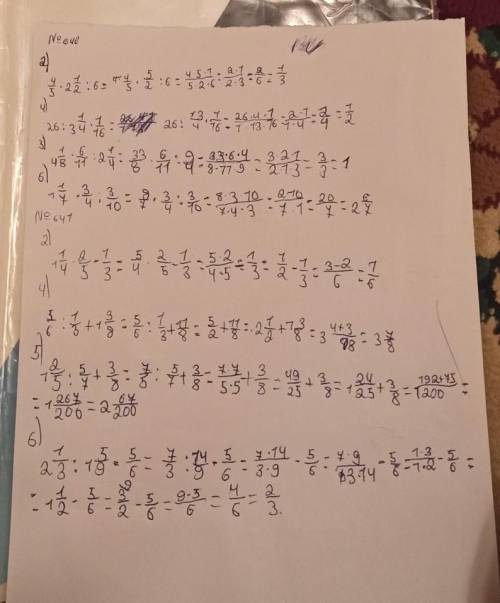 №640
2)
4/5 · 2 1/2 : 6 = 4/5 · 5/2 : 6 = 4·5·1/5·2·6 = 2·1/2·3 = 2/6 = 1/3
4)
26 : 3 1/4 · 1/16 = 26 : 13/4 · 1/16 = 26·4·1/1·13·16 = 2·1/1·4 = 2/4 = 1/2
3)
4 1/8 · 6/11 : 2 1/4 = 33/8 · 6/11 : 9/4 = 33·6·4/8·11·9 = 3·2·1/2·1·3 = 3/3 = 1
6)
1 1/7 · 3/4 : 3/10 = 8/7 · 3/4 : 3/10 = 8·3·10/7·4·3 = 2·10/7·1 = 20/7 = 2 6/7
№641
2)
1 1/4 · 2/5 - 1/3 = 5/4 · 2/5 - 1/3 = 5·2/4·5 - 1/3 = 1/2 - 1/3 = 3-2/6 = 1/6
4)
5/6 : 1/3 + 1 3/8 = 5/6 : 1/3 + 11/8 = 5/2 + 11/8 = 2 1/2 + 1 3/8 = 3 4+3/8 = 3 7/8
5)
1 2/5 : 5/7 + 3/8 = 7/5 : 5/7 + 3/8 = 7·7/5·5 + 3/8 = 49/25 + 3/8 = 1 24/25 + 3/8 = 1 192+75/200 =
= 1 267/200 = 2 67/200
6)
2 1/3 : 1 5/9 - 5/6 = 7/3 : 14/9 - 5/6 = 7·14/3·9 - 5/6 = 7·9/3·14 - 5/6 = 1·3/1·2 - 5/6 =
= 1 1/2 - 5/6 = 3/2 - 5/6 = 9-5/6 = 4/6 = 2/3.